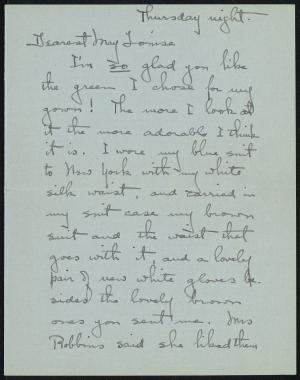 Thursday night.
Dearest May Louise
I'm so glad you like
the green I chose for my
gown! The more I look at
it the more adorable I think
it is. I wore my blue suit
to New York with my white
silk waist, and carried in
my suit case my brown
suit and the waist that
goes with it, and a lovely
pair of new white gloves be-
sides the lovely brown
ones you sent me. Mrs
Robbins said she liked them